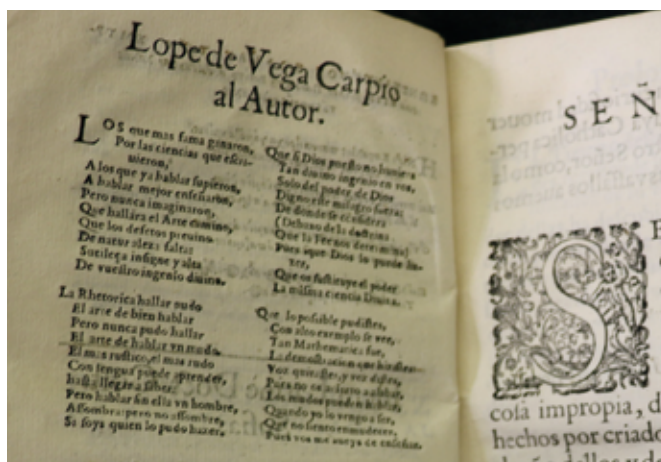 Lope de Vega Carpio
al Autor.
LOS que mas fama ganaron,
Por las ciencias que escri-
uieron,
A los que ya hablar supieron,
A hablar mejor enseñaron,
Pero nunca imaginaron,
Que hallára el Arte camino,
Que los defetos preuino
De naturaleza faltas
Sutileza insigne y alta
De vuestro ingenio diuino.
La Rhetorica hallar pudo
El arte de bien hablar
Pero nunca pudo hallar
El arte de hablar vn mudo.
El mas rustico, el mas rudo
Con lengua puede aprender,
hasta llegar a saber:
Pero hablar sin ella vn hombre,
Assombra: pero no assombre,
Si soys quien lo pudo hazer.
Que si Dios puesto no huuiera
Tan diuino ingenio en vos,
Solo del poder de Dios
Digno este milagro fuera:
De donde se
(Debaxo de la
Que la Fè nos determina)
Pues que Dios lo puede ha-
zer,
Que os sustituye el poder
La misma ciencia Diuina.
Que lo possible pudistes,
Con alto exemplo se vee,
Tan Mathematica fue,
La demostracion que hizistes
Voz quitastes, y voz distes,
Para no
Los mudos pueden hablar,
Quando yo lo vengo a ser,
Que no siento enmudecer,
Pues vos me aueys de enseñar.
SEÑ
S
cosa impropia, d
hechos por criado